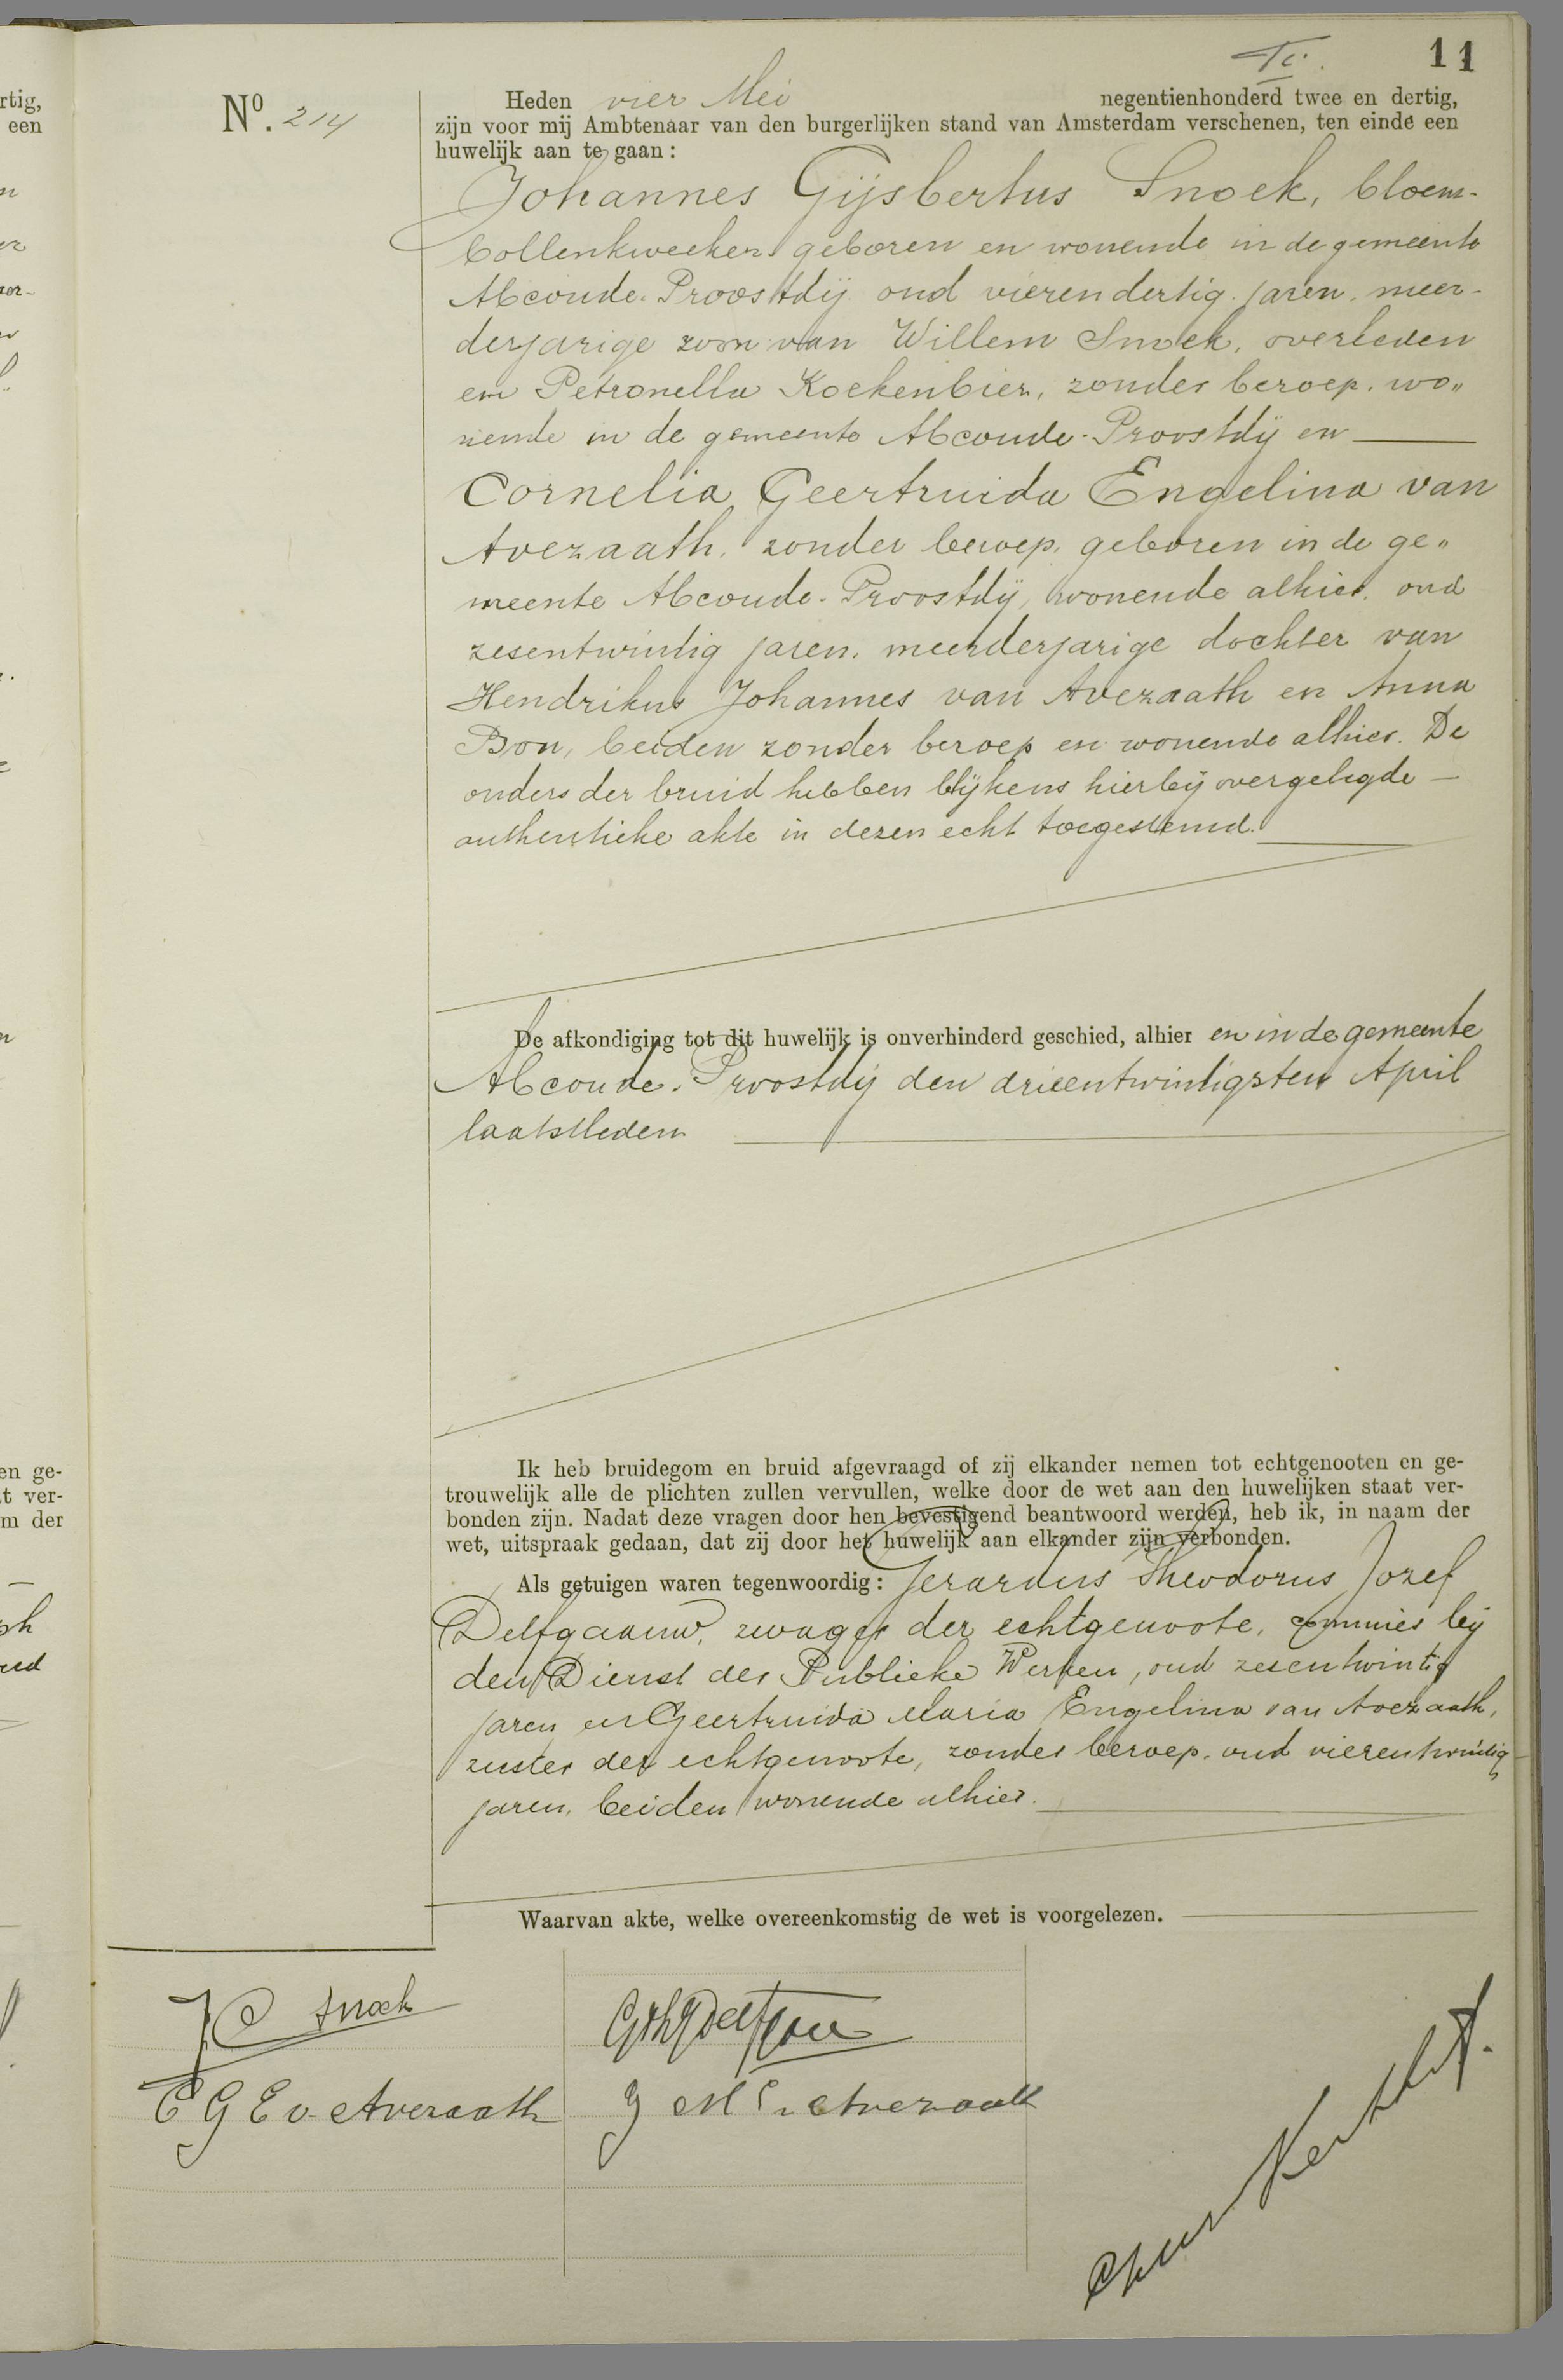 11
Nº. 214
Heden vier Mei negentienhonderd twee en dertig,
zijn voor mij Ambtenaar van den burgerlijken stand van Amsterdam verschenen, ten einde een
huwelijk aan te gaan:
Johannes Gijsbertus Snoek, bloem-
bollenkweeker geboren en wonende in de gemeente
Abcoude-Proostdij oud vierendertig jaren, meer-
derjarige zoon van Willem Snoek, overleden
en Petronella Koekenbier, zonder beroep, wo„
nende in de gemeente Abcoude-Proostdij en
Cornelia Geertruida Engelina van
Avezaath, zonder beroep, geboren in de ge„
meente Abcoude-Proostdij, wonende alhier, oud
zesentwintig jaren, meerderjarige dochter van
Hendrikus Johannes van Avezaath en Anna
Bon, beiden zonder beroep en wonende alhier. De
ouders der bruid hebben blijkens hierbij overgelegde
authentieke akte in dezen echt toegestemd.
De afkondiging tot dit huwelijk is onverhinderd geschied, alhier en in de gemeente
Abcoude-Proostdij den drieentwintigsten April
laatstleden
Ik heb bruidegom en bruid afgevraagd of zij elkander nemen tot echtgenooten en ge-
trouwelijk alle de plichten zullen vervullen, welke door de wet aan den huwelijken staat ver-
bonden zijn. Nadat deze vragen door hen bevestigend beantwoord werden, heb ik, in naam der
wet, uitspraak gedaan, dat zij door het huwelijk aan elkander zijn verbonden.
Als getuigen waren tegenwoordig: Gerardus Theodorus Jozef
Delfgaauw, zwager der echtgenoote, commies bij
den Dienst der Publieke Werken, oud zesentwintig
jaren en Geertruida Maria Engelina van Avezaath,
zuster der echtgenoote, zonder beroep, oud vierentwintig
jaren, beiden wonende alhier.
Waarvan akte, welke overeenkomstig de wet is voorgelezen.
J G Snoek
C G E v. Avezaath
G M E v. Avezaath